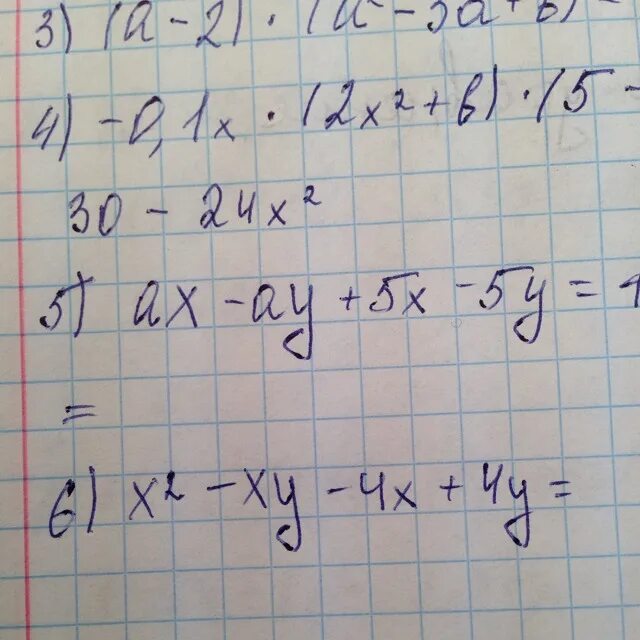 3) (a - 2) · (a² - 3a + 6) -
4) -0,1x · (2x² + 6) · (5 -
30 - 24x²
5) ax - ay + 5x - 5y =
=
6) x² - xy - 4x + 4y =